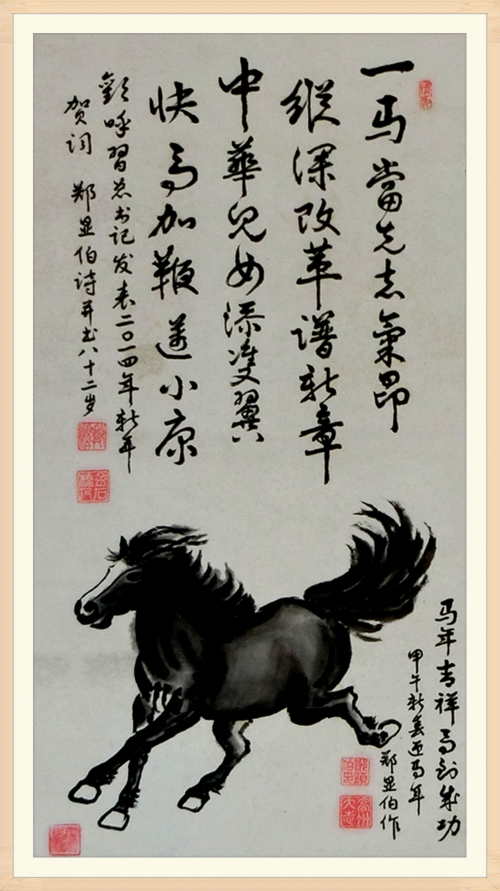 一马當先志氣昂
縱深改革譜新章
中華兒女添雙翼
快马加鞭小康
歡呼習总书记发表二〇一四年新年
贺词 郑显伯诗并书八十二岁
马年吉祥马到成功
甲午新春迎马年
郑显伯作